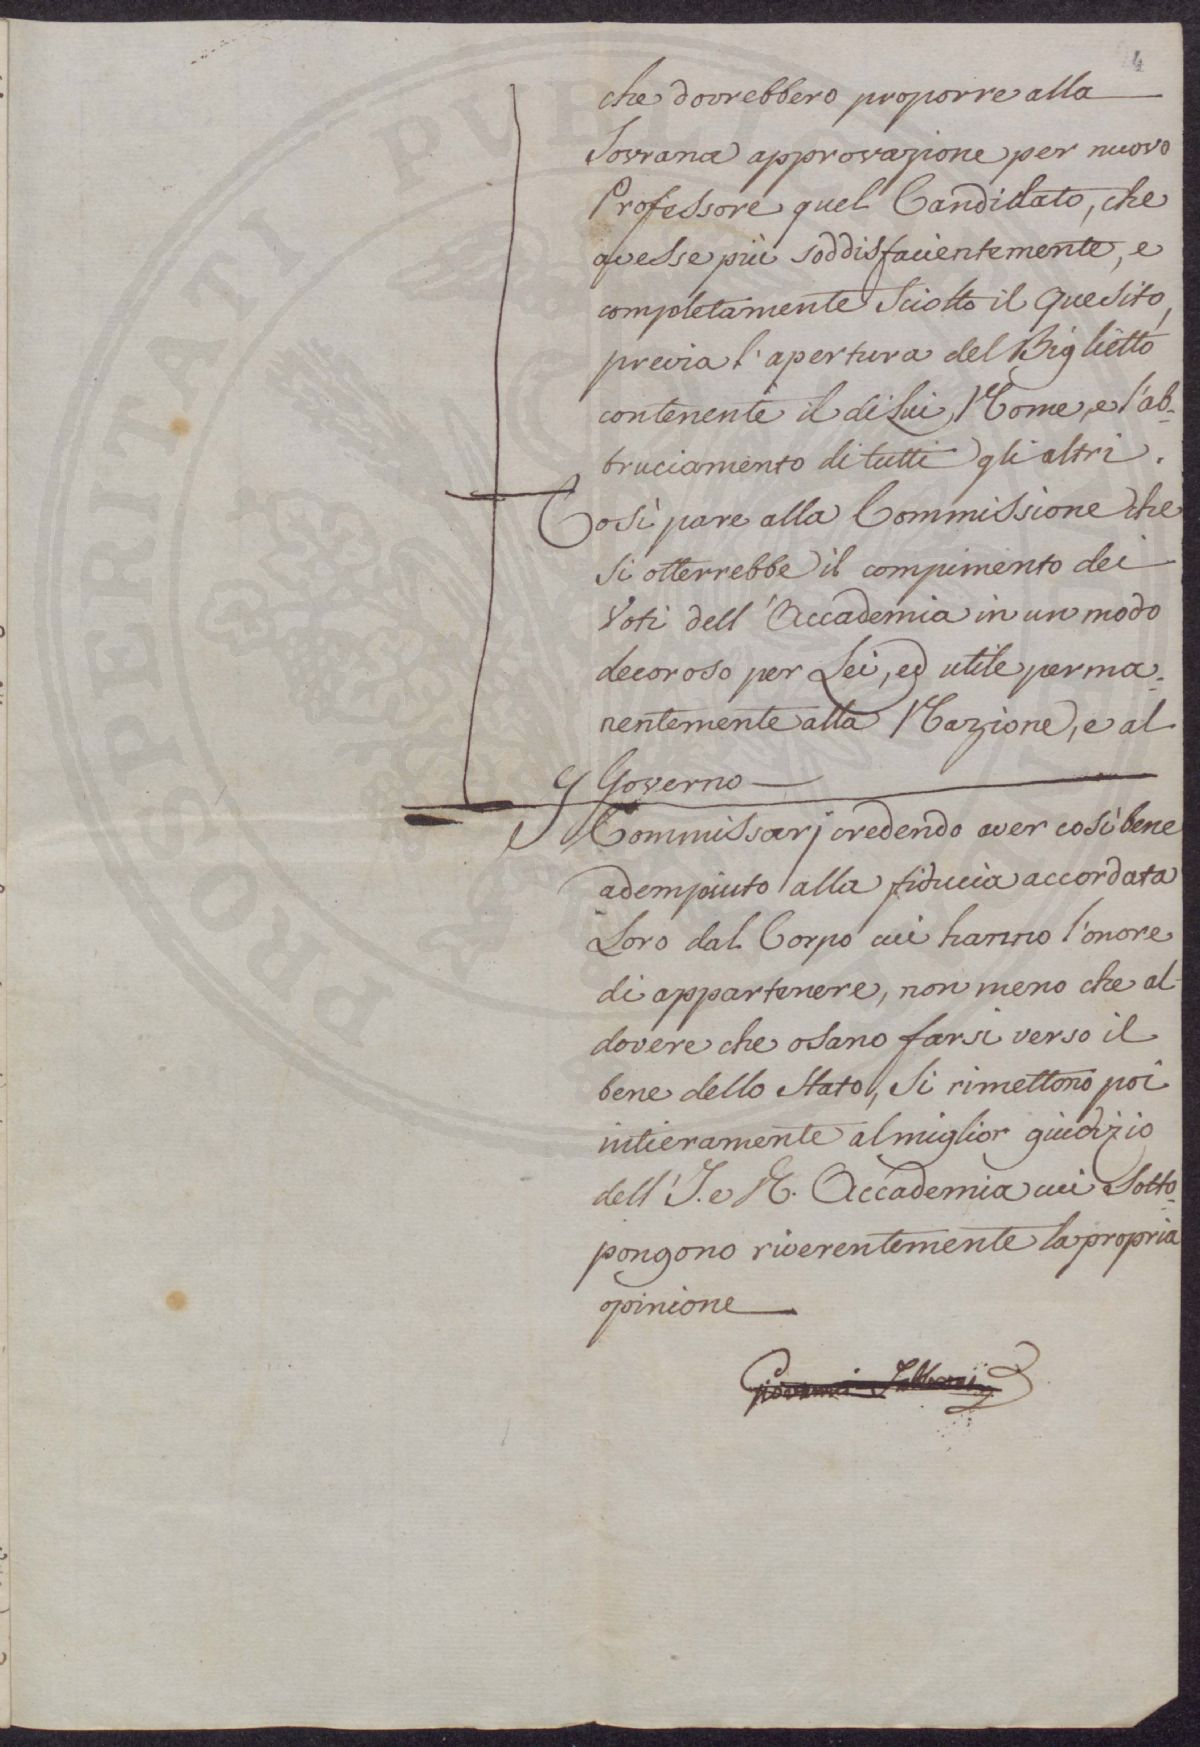 4
che dovrebbero proporre alla
Sovrana approvazione per nuovo
Professore quel Candidato, che
avesse più soddisfacientemente, e
completamente sciolto il Quesito,
previa l'apertura del Biglietto
contenente il di Lui Nome, e l'ab-
bruciamento di tutti gli altri.
Così pare alla Commissione che
si otterrebbe il compimento dei
Voti dell'Accademia in un modo
decoroso per Lei, ed utile perma-
nentemente alla Nazione, e al
Governo
I Commissarj credendo aver così bene
adempiuto alla fiducia accordata
Loro dal Corpo cui hanno l'onore
di appartenere, non meno che al
dovere che osano farsi verso il
bene dello Stato, si rimettono poi
intieramente al miglior giudizio
dell'I. e R. Accademia cui sotto-
pongono riverentemente la propria
opinione
Giovanni Fabbroni
PERITATI PUBLICAE